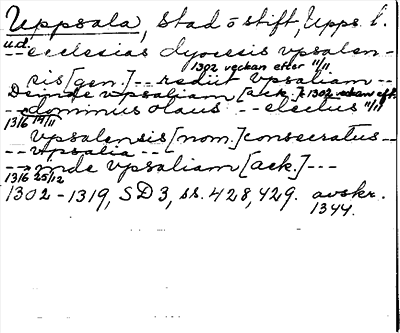 Uppsala, stad o stift, Upps. l.
u.d.
-- ecclesias dyocesis vpsalen-
1302 veckan efter 11/11
sis [gen.] -- rediit vpsaliam --
Deinde vpsaliam [ack.] 1302 veckan eft. 11/11
-- dominus olaus -- electus
1316 19/11
vpsalensis [nom.] consecratus --
-- vpsalia --
-- inde vpsaliam [ack.] ---
1316 25/12
1302-1319, SD3, ss. 428, 429. avskr.
1344.